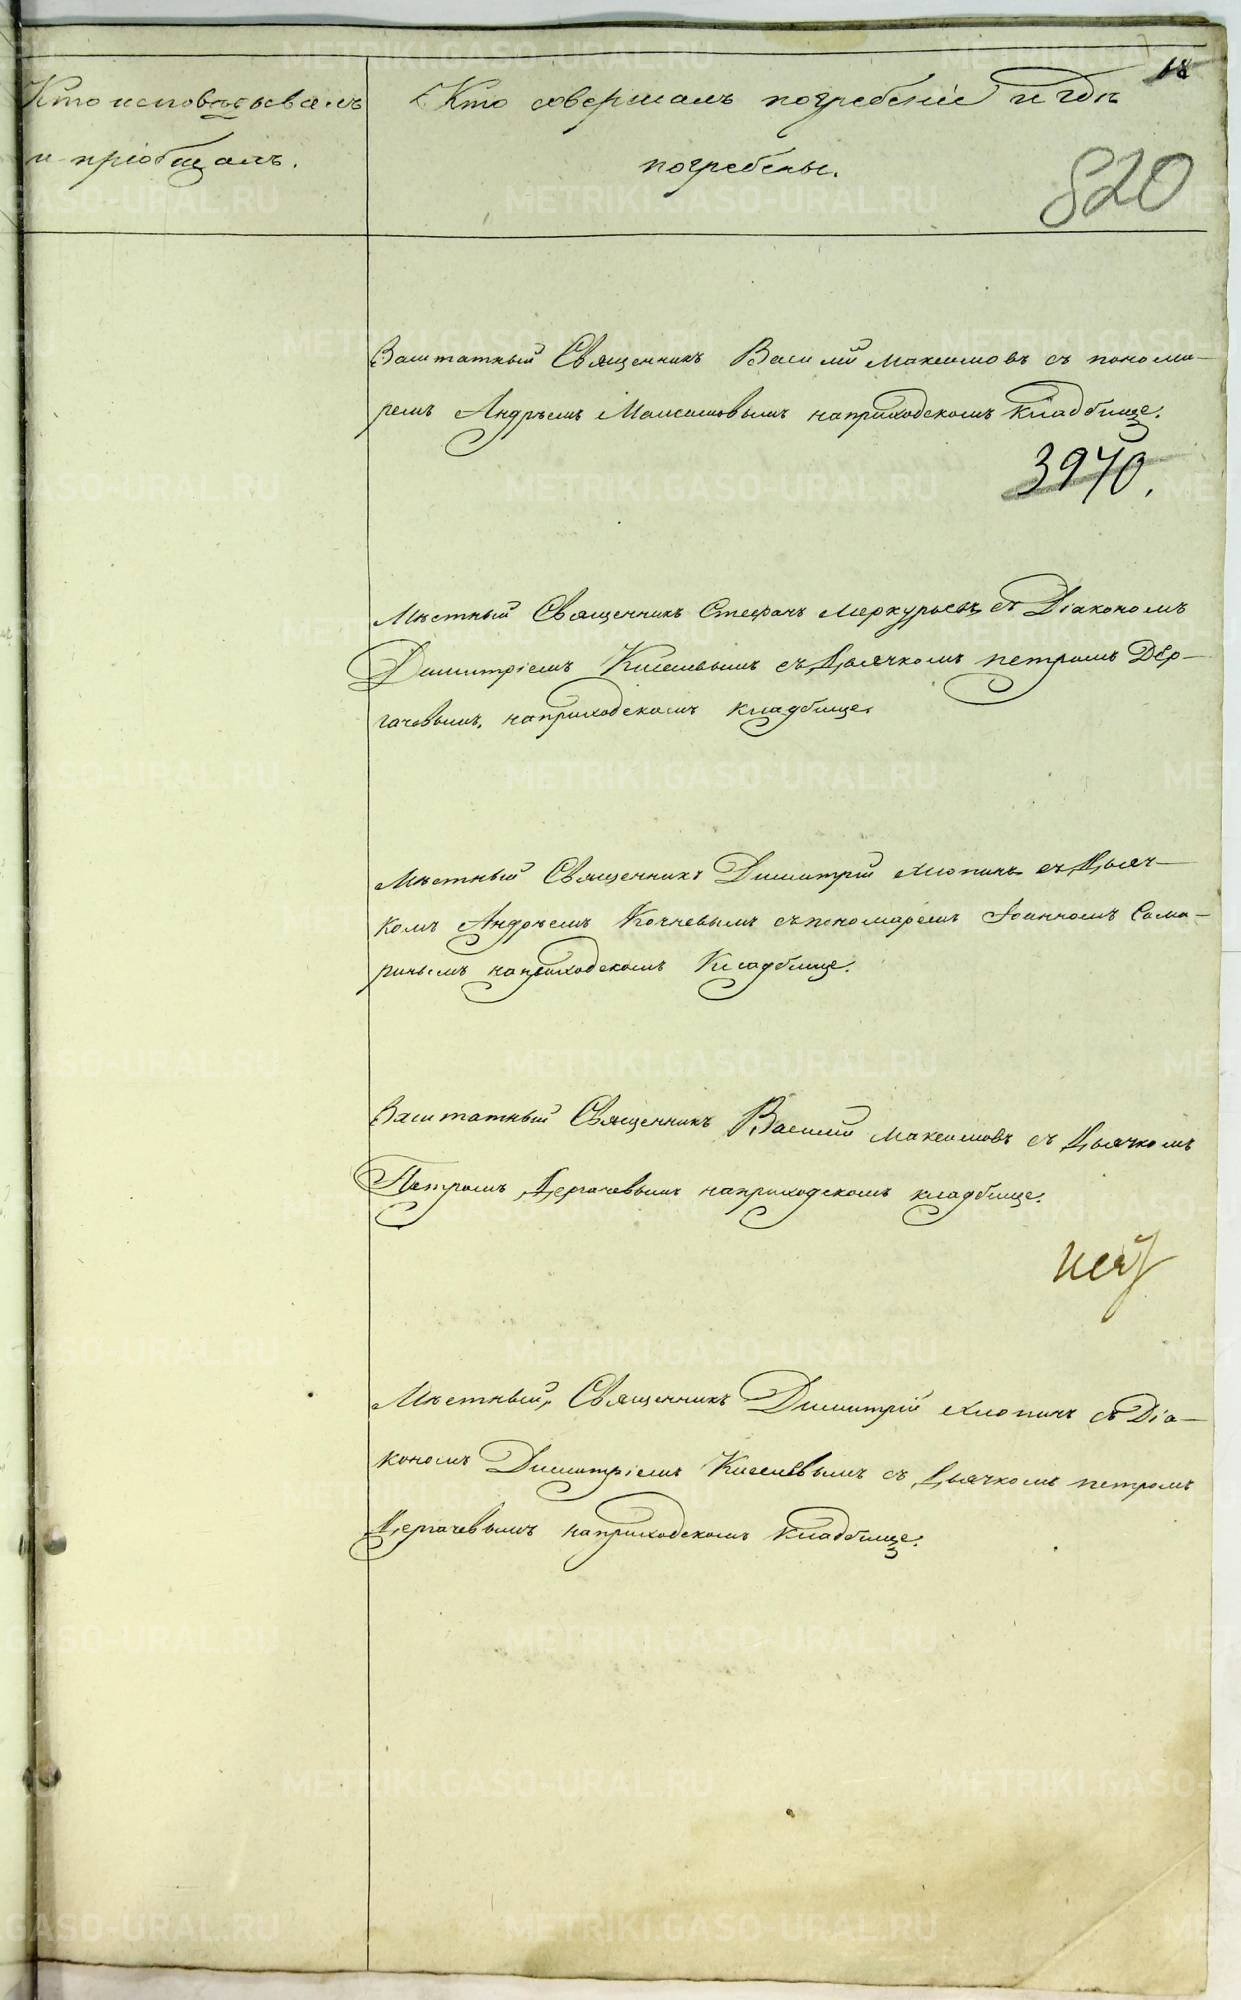 18
Кто исповѣдывалъ
и пріобщалъ.
Кто совершалъ погребеніе и гдѣ
погребены.
820
Заштатный Священникъ Василій Максимовъ съ понома-
ремъ Андреемъ Максимовымъ на приходскомъ кладбище.
3940.
Мѣстный Священникъ Стефанъ Меркурьевъ съ Діакономъ
Димитріемъ Киселевымъ съ Дьячкомъ петромъ Дер-
гачевымъ, на приходскомъ кладбище.
Мѣстный Священникъ Димитрій Хлопинъ съ Дьяч-
комъ Андреемъ Кочневымъ съ пономаремъ Іоанномъ Сама-
ринымъ на приходскомъ Кладбище.
Заштатный Священникъ Василій Максимовъ съ Дьячкомъ
Петромъ Дергачевымъ на приходскомъ кладбище.
Мѣстный, Священникъ Димитрій Хлопинъ съ Діа-
кономъ Димитріемъ Киселевымъ съ Дьячкомъ петромъ
Дергачевымъ на приходскомъ Кладбище.
METRIKI.GASO-URAL.RU